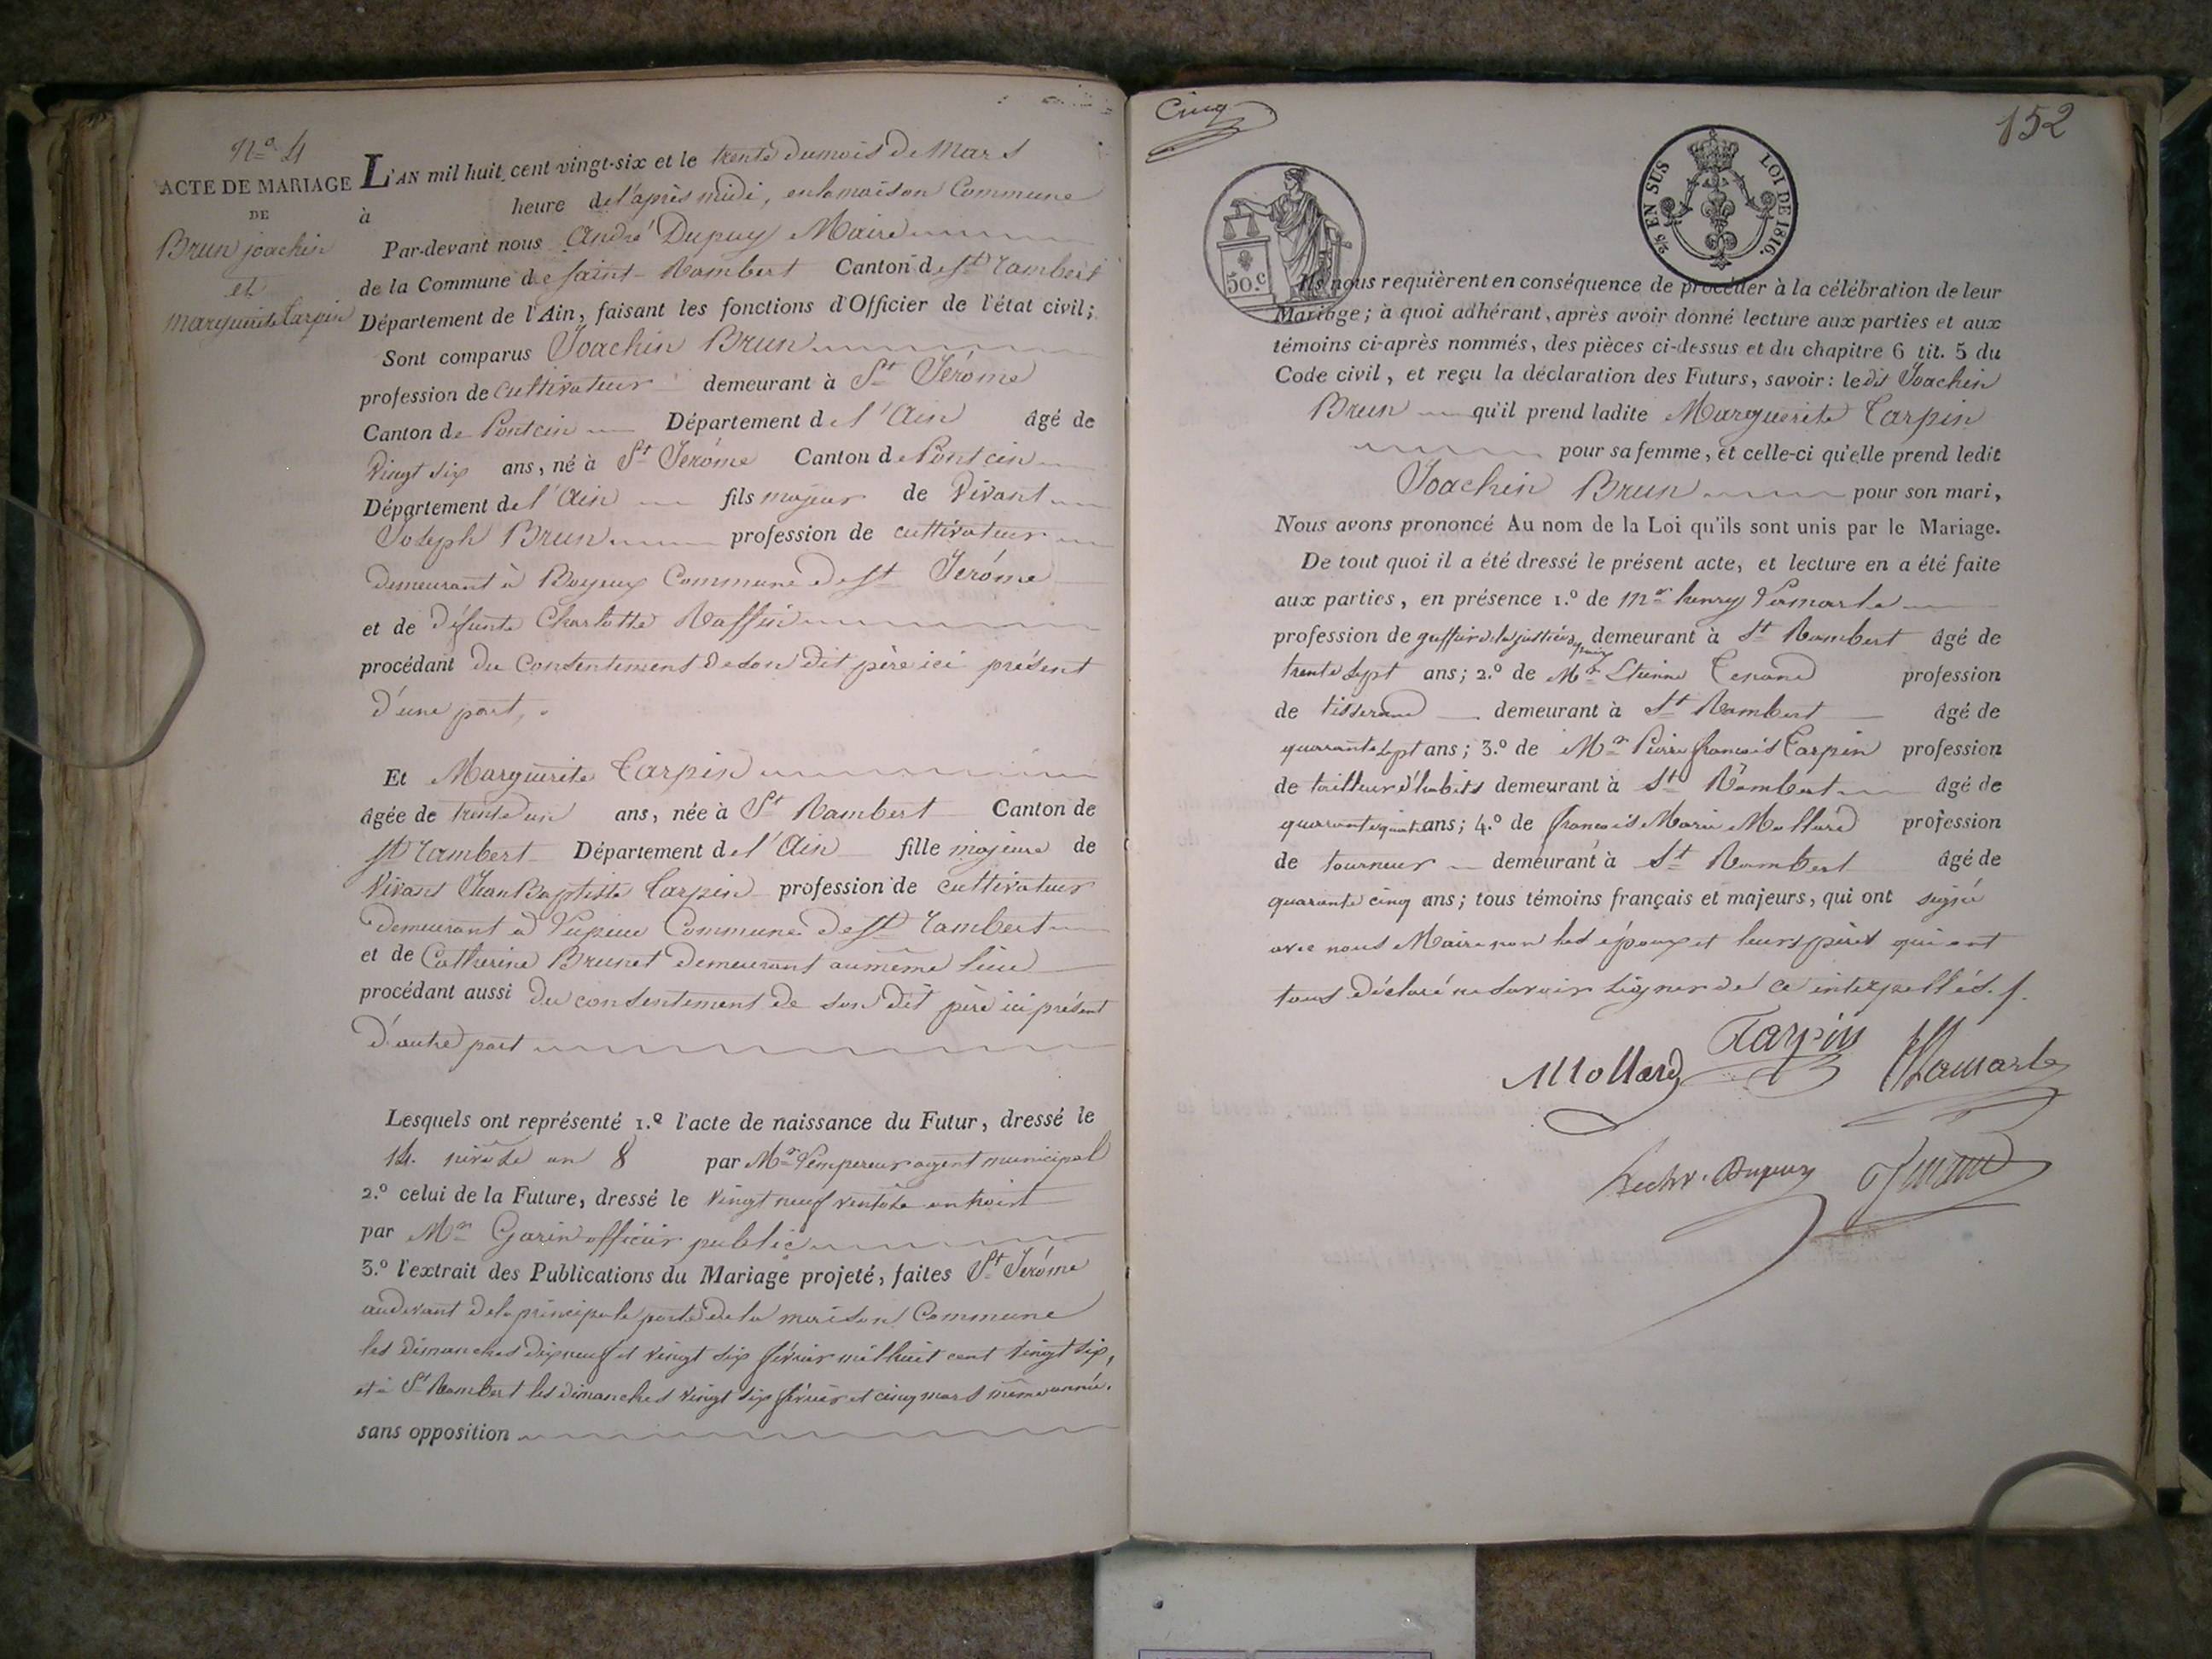 N.o 4
ACTE DE MARIAGE
DE
Brun joachin
et
marguerite Carpin
L'AN mil huit cent vingt-six et le trente du mois de Mars
à heure de l'après midi, en la maison Commune
Par-devant nous André Dupuy Maire
de la Commune de saint-Rambert Canton de St Rambert
Département de l'Ain, faisant les fonctions d'Officier de l'état civil;
Sont comparus Joachin Brun
profession de cultivateur demeurant à St Jérôme
Canton de Pontcin Département de l'Ain âgé de
vingt six ans, né à St Jérôme Canton de Pontcin
Département de l'Ain fils majeur de vivant
Joseph Brun profession de cultivateur
demeurant à Boyeux Commune de St Jérôme
et de défunte Charlotte Raffin
procédant du consentement de son dit père ici présent
d'une part,
Et Marguerite Carpin
âgée de trente un ans, née à St Rambert Canton de
St Rambert Département de l'Ain fille majeure de
vivant Jean Baptiste Carpin profession de cultivateur
demeurant à Commune de St Rambert
et de Catherine Brunet demeurant au même lieu
procédant aussi du consentement de son dit père ici présent
d'autre part
Lesquels ont représenté 1.o l'acte de naissance du Futur, dressé le
14 nivôse an 8 par Mr Lempereur agent municipal
2.o celui de la Future, dressé le vingt neuf ventôse an trois
par Mr Garin officier public
3.o l'extrait des Publications du Mariage projeté, faites St Jérôme
au devant de la principale porte de la maison Commune
les dimanches dix neuf et vingt six février mil huit cent vingt six,
et à St Rambert les dimanches vingt six février et cinq mars même année.
sans opposition
Cinq
152
5/2 EN SUS LOI DE 1816.
50 c
Ils nous requièrent en conséquence de procéder à la célébration de leur
Mariage; à quoi adhérant, après avoir donné lecture aux parties et aux
témoins ci-après nommés, des pièces ci-dessus et du chapitre 6 tit. 5 du
Code civil, et reçu la déclaration des Futurs, savoir: le dit Joachin
Brun qu'il prend ladite Marguerite Carpin
pour sa femme, et celle-ci qu'elle prend ledit
Joachin Brun pour son mari,
Nous avons prononcé Au nom de la Loi qu'ils sont unis par le Mariage.
De tout quoi il a été dressé le présent acte, et lecture en a été faite
aux parties, en présence 1.o de Mr henry
profession de greffier de la justice de paix demeurant à St Rambert âgé de
trente sept ans; 2.o de Mr Etienne profession
de tisserand demeurant à St Rambert âgé de
quarante sept ans; 3.o de Mr Pierre françois Carpin profession
de tailleur d'habits demeurant à St Rambert âgé de
quarante quatre ans; 4.o de françois Marie Mollard profession
de tourneur demeurant à St Rambert âgé de
quarante cinq ans; tous témoins français et majeurs, qui ont signé
avec nous Maire non les époux et leurs pères qui ont
tous déclaré ne savoir signer de ce interpellés.
Carpin
Mollard
Dupuy